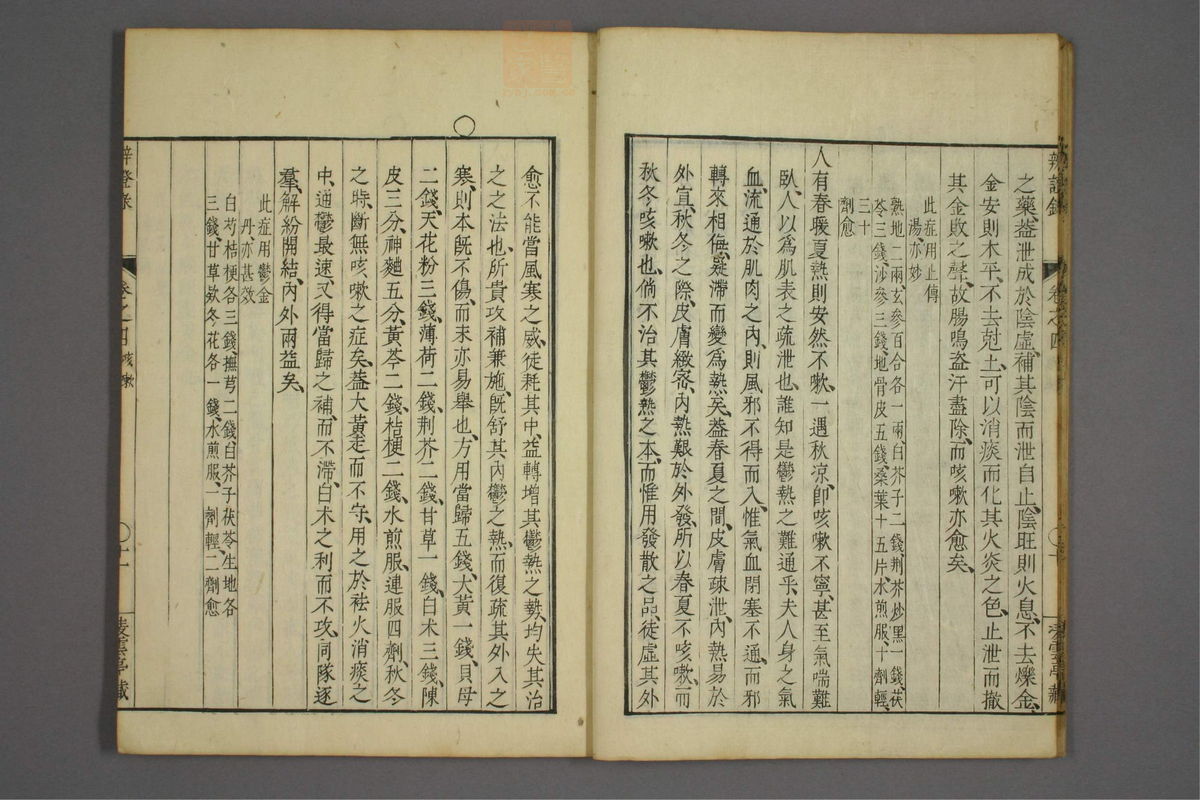 之藥、葢泄成於陰虛、補其陰而泄自止、陰旺則火息、不去爍金、
金安則木平、不去尅土、可以消痰而化其火炎之色、止泄而撤
其金敗之聲、故腸鳴盗汗盡除、而咳嗽亦愈矣、
此症用止傳
湯、亦妙
熟地二兩、玄參百合各一兩、白芥子二錢、荆芥炒黑一錢、茯
苓三錢、沙參三錢、地骨皮五錢、桑葉十五片、水煎服、十劑輕、
三十
劑愈
人有春暖夏熱則安然不嗽、一遇秋凉、卽咳嗽不寧、甚至氣喘難
臥、人以爲肌表之疏泄也、誰知是鬱熱之難通乎、夫人身之氣
血、流通於肌肉之內、則風邪不得而入、惟氣血閉塞不通、而邪
轉來相侮、凝滯而變爲熱矣、葢春夏之間、皮膚疎泄、內熱易於
外宜、秋冬之際、皮膚緻密、內熱艱於外發、所以春夏不咳嗽、而
秋冬咳嗽也、倘不治其鬱熱之本、而惟用發散之品、徒虛其外
愈不能當風寒之威、徒耗其中、益轉增其鬱熱之勢、均失其治
之之法也、所貴攻補兼施、旣舒其內鬱之熱、而復疏其外入之
寒、則本旣不傷、而末亦易舉也、方用當歸五錢、大黄一錢、貝母
二錢、天花粉三錢、薄荷二錢、荆芥二錢、甘草一錢、白术三錢、陳
皮三分、神麯五分、黃芩二錢、桔梗二錢、水煎服、連服四劑、秋冬
之時、斷無咳嗽之症矣、葢大黃走而不守、用之於祛火消痰之
中、通鬱最速、又得當歸之補、而不滯、白术之利而不攻、同隊逐
羣、解紛開結、內外兩益矣、
此症用鬱金
丹、亦甚效
白芍桔梗各三錢、撫芎二錢白芥子茯苓生地各
三錢、甘草款冬花各一錢、水煎服、一劑輕、二劑愈
辨證录
卷之四 咳嗽
十一